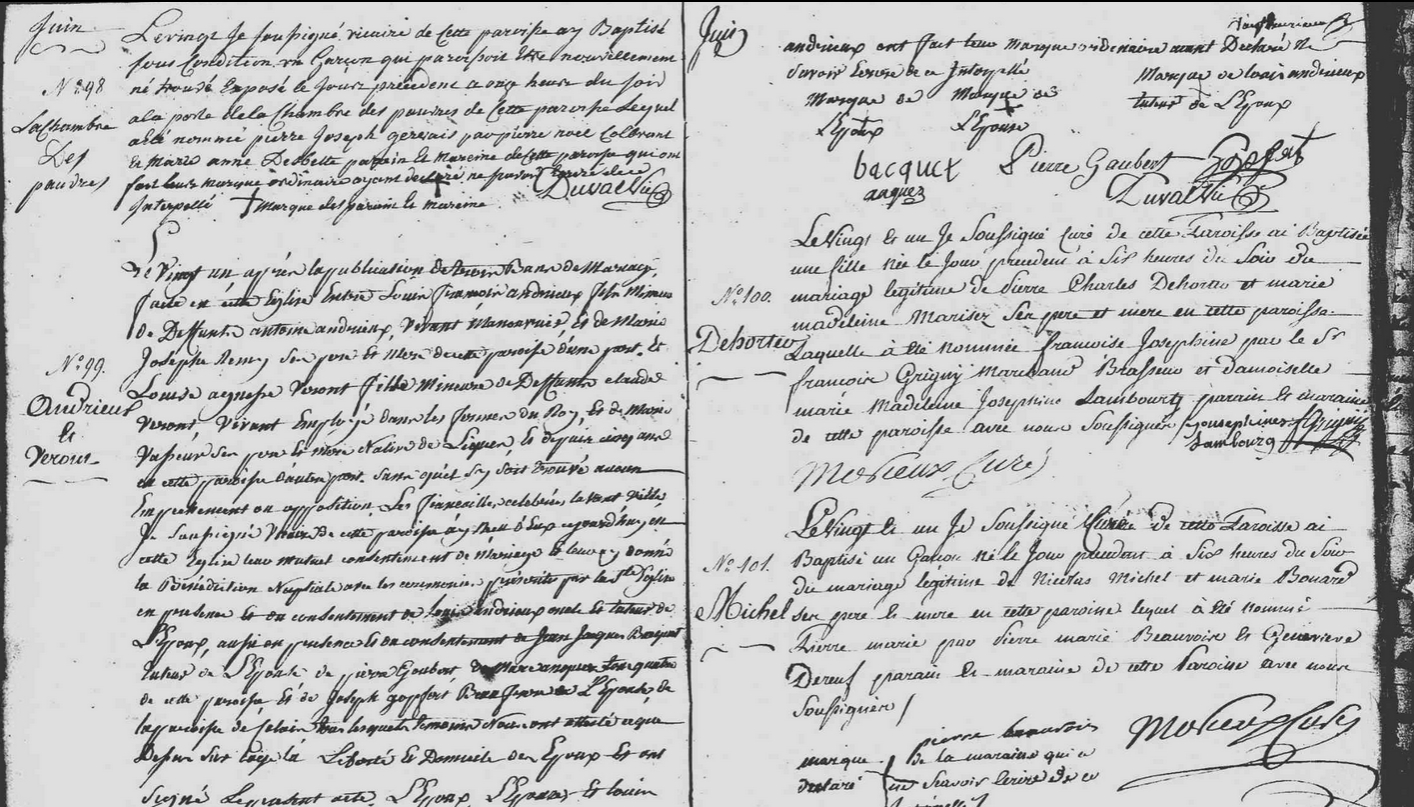 Juin
Le vingt Je soussigné vicaire de Cette paroisse ay Baptisé
sous Condition un Garçon qui paroissoit être nouvellement
né trouvé Exposé le Jour précédent a onze heure du soir
N° 98
a la porte de la Chambre des pauvres de Cette paroisse Lequel
La Chambre
a été nommé pierre Joseph gervais par pierre noel Colbrant
Des
et Marie anne Debette parain et Mareine de Cette paroisse qui ont
pauvres
fait leurs Marque ordinaire ayant declaré ne savoir Ecrire de ce
Interpellé Marque des parain et Mareine
Duval Vic
Le Vingt un après la publication de Bans de Mariage
faite en cette Eglise Entre Louis françois andrieux fils Mineur
de Deffunt antoine andrieux, Vivant Manouvrier et de Marie
Josephe ses père et Mere de cette paroisse d'une part, et
N° 99.
Louise agnesse Veront fille Mineure de Deffunt claude
Andrieux
Veront, Vivant Employé dans les fermes du Roy, et de Marie
et
Vasseur ses père et Mere Native de et depuis cinq ans
Veront
en cette paroisse d'autre part. sans qu'il s'y soit trouvé aucun
Empechement ou opposition, Les fiancailles celebrées la veille
Je soussigné Vicaire de cette paroisse ay d'Eux aujourd'huy en
cette Eglise leur mutuel consentement de Mariage et leur ay donné
la Bénédiction Nuptiale avec les ceremonies prescrites par la Ste Eglise
en presence et du consentement de Louis andrieux oncle et tuteur de
L'Epoux, aussi en presence et du consentement de Jean Jacques Bacquet
tuteur de L'Epouse de pierre Goubert, de Marc anquez
de cette paroisse et de Joseph goffart Beau frere de L'Epouse de
la paroisse de tous lesquels temoins Nous ont attesté ce que
Dessus sur la Liberté et Domicile des Epoux et ont
signé Le present acte, L'Epoux L'Epouse et louis
Juin
andrieux ont fait leur Marque ordinaire aiant Declaré ne
savoir Ecrire de ce Interpellé
Marque de louis andrieux
Marque de Marque de
tuteur de L'Epoux
L'Epoux L'Epouse
bacquet Pierre Gaubert Goffart
anquez
Duval Vic
Le Vingt et un Je Soussigné Curé de cette Paroisse ai Baptisée
une fille née le Jour precedent à Six heures du Soir du
N° 100.
mariage legitime de Pierre Charles Dehorter et marie
madeleine Marisez ses pere et mere en cette paroisse.
Dehorter
Laquelle à été nommée françoise Josephine par le Sr
françois Grigny Marchand Brasseur et damoiselle
marie Madeleine Josephine Lambourg parain et maraine
de cette paroisse avec nous Soussignés
josephines
Lambourg
Grigny
Morieux Curé
Le Vingt et un Je Soussigné Curé de cette Paroisse ai
Baptisé un Garcon né le Jour precedent à Six heures du Soir
N° 101.
du mariage legitime de Nicolas Michel et marie Bouard
Michel
ses pere et mere en cette paroisse lequel à été nommé
Pierre marie par Pierre marie Beauvois et Genevieve
Dereuf parain et maraine de cette Paroisse avec nous
Soussignés
pierre beauvois
Morieux Curé
marque de la maraine qui a
declaré ne Savoir Ecrire de ce